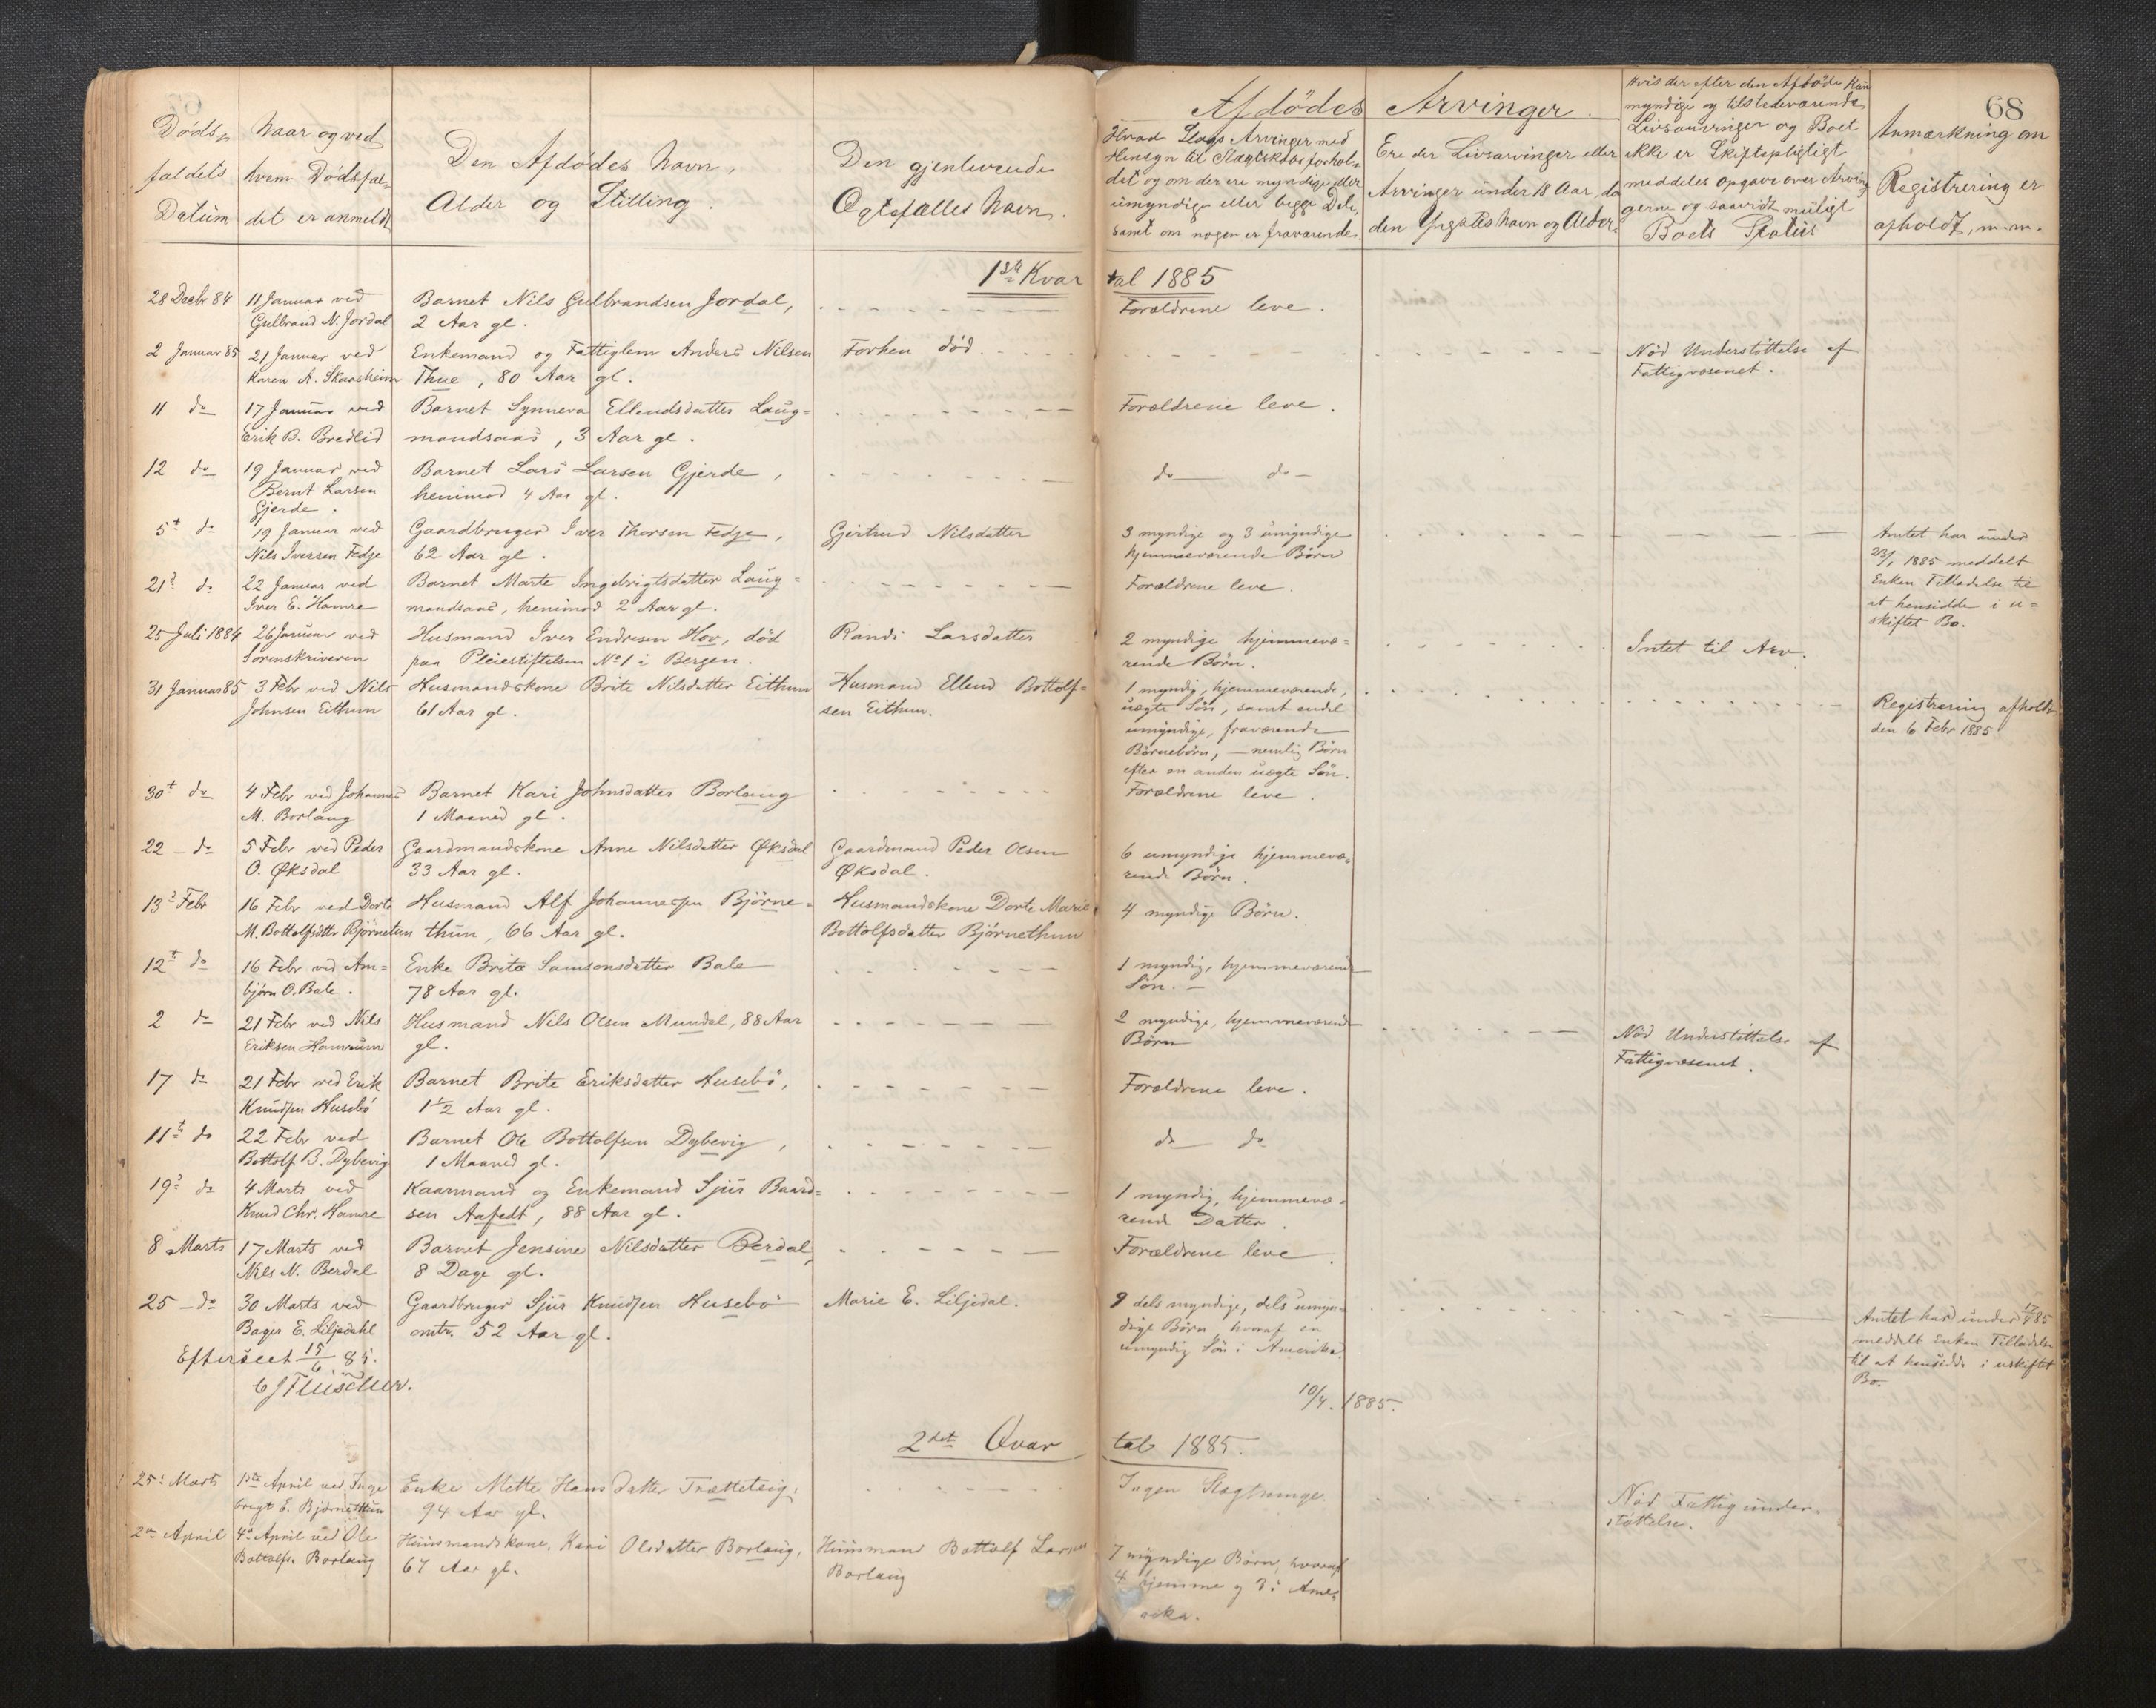 68
Afdödes Arvinger.
Dødsfaldets Datum
Naar og ved hvem Dødsfaldet er anmeldt
Den Afdødes Navn, Alder og Stilling.
Den gjenlevende Ægtefælles Navn.
Hvad Slags Arvinger med
Hensyn til Slægtskabsforhol-
det og om der ere myndige eller
umyndige eller begge Dele,
samt om nogen er fraværende.
Ere der Livsarvinger eller
Arvinger under 18 Aar, da
den Yngstes Navn og Alder.
Hvis der efter den Afdöde kun
myndige og tilstedeværende
Livsarvinger og Boet
ikke er Skiftepligtigt
meddeles Opgave over Arvin-
gerne og saavidt muligt
Boets Status
Anmærkning om
Registrering er
afholdt, m.m.
1ste Kvartal 1885
28 Decbr 84 11 Januar ved Barnet Nils Gulbrandsen Jordal, Forældrene leve.
Gulbrand N. Jordal 2 Aar gl.
2 Januar 85 21 Januar ved Enkemand og Fattiglem Anders Nilsen Forhen död. Nöd Understöttelse af
Karen A. Skaasheim Thue, 80 Aar gl. Fattigvæsenet.
11 do 17 Januar ved Barnet Synneva Ellendsdatter Laug= Forældrene leve.
Erik B. Bredlid mandsaas, 3 Aar gl.
12 do 19 Januar ved Barnet Lars Larsen Gjerde, do do
Bernt Larsen henimod 4 Aar gl.
Gjerde.
5t do 19 Januar ved Gaardbruger Iver Thorsen Fedje, Gjertrud Nilsdatter 3 myndige og 3 umyndige Amtet har under
Nils Iversen Fedje 62 Aar gl. hjemmeværende Börn 23/1 1885 meddelt
Enken Tilladelse til
at hensidde i u=
skiftet Bo.
21d do 22 Januar ved Barnet Marte Ingebrigtsdatter Laug= Forældrene leve.
Iver E. Hamre mandsaas, henimod 2 Aar gl.
25 Juli 1884 26 Januar ved Husmand Iver Endresen Hov, död Randi Larsdatter 2 myndige hjemmevæ= Intet til Arv.
Sorenskriveren paa Pleiestiftelsen No 1 i Bergen. rende Börn.
31 Januar 85 3 Febr ved Nils Husmandskone Brite Nilsdatter Eithun Husmand Ellend Bottolf= 1 myndig, hjemmeværende, Registrering afholdt
Johnsen Eithun 61 Aar gl. sen Eithun. uægte Sön, samt endel den 6 Febr 1885
umyndige, fraværende
Börnebörn, — nemlig Börn
efter en anden uægte Sön.
30t do 4 Febr ved Johannes Barnet Kari Johnsdatter Borlaug Forældrene leve.
M. Borlaug 1 Maaned gl.
22 do 5 Febr ved Peder Gaardmandskone Anne Nilsdatter Øksdal Gaardmand Peder Olsen 6 umyndige hjemmevæ=
O. Øksdal 33 Aar gl. Øksdal. rende Börn.
13d Febr 16 Febr ved Dorte Husmand Alf Johannesen Björne= Husmandskone Dorte Marie 4 myndige Börn.
M. Bottolfsdtr Björnetun thun, 66 Aar gl. Bottolfsdatter Björnethun
12t do 16 Febr ved Am= Enke Brita Samsonsdatter Bale 1 myndig, hjemmeværende
björn O. Bale. 78 Aar gl. Sön.
2 do 21 Febr ved Nils Husmand Nils Olsen Mundal, 88 Aar 2 myndige, hjemmeværende Nöd Understöttelse af
Eriksen gl. Börn Fattigvæsenet.
17 do 21 Febr ved Erik Barnet Brite Eriksdatter Husebö, Forældrene leve.
Knudsen Husebö 1 1/2 Aar gl.
11t do 22 Febr ved Barnet Ole Bottolfsen Dybevig, do do
Bottolf B. Dybevig 1 Maaned gl.
19d do 4 Marts ved Kaarmand og Enkemand Sjur Baard= 1 myndig, hjemmevæ=
Knud Chr. Hamre sen Aafedt, 88 Aar gl. rende Datter.
8 Marts 17 Marts ved Barnet Jensine Nilsdatter Berdal, Forældrene leve.
Nils N. Berdal 8 Dage gl.
25 do 30 Marts ved Gaardbruger Sjur Knudsen Husebö Marie E. Liljedal. 9 dels myndige, dels umyn= Amtet har under
Bager E. Liljedahl omtr. 52 Aar gl. dige Börn hvoraf en meddelt Enken Tilladelse
umyndig Sön i Amerika. til at hensidde i uskiftet
Bo.
Efterseet 15/6 85.
10/4. 1885.
2det Qvartal 1885.
25de Marts 1ste April ved Inge Enke Mette Hansdatter Trætteteig, Ingen Slægtninge. Nöd Fattigunder-
brigt E. Björnethun 94 Aar gl. støttelse.
2den April 4de April ved Ole Huusmandskone, Kari Olsdatter Borlaug, Huusmand Bottolf Larsen 7 myndige Børn, hvoraf
Bottolfs. Borlaug 67 Aar gl. Borlaug 4 hjemme og 3 i Ame-
rika.